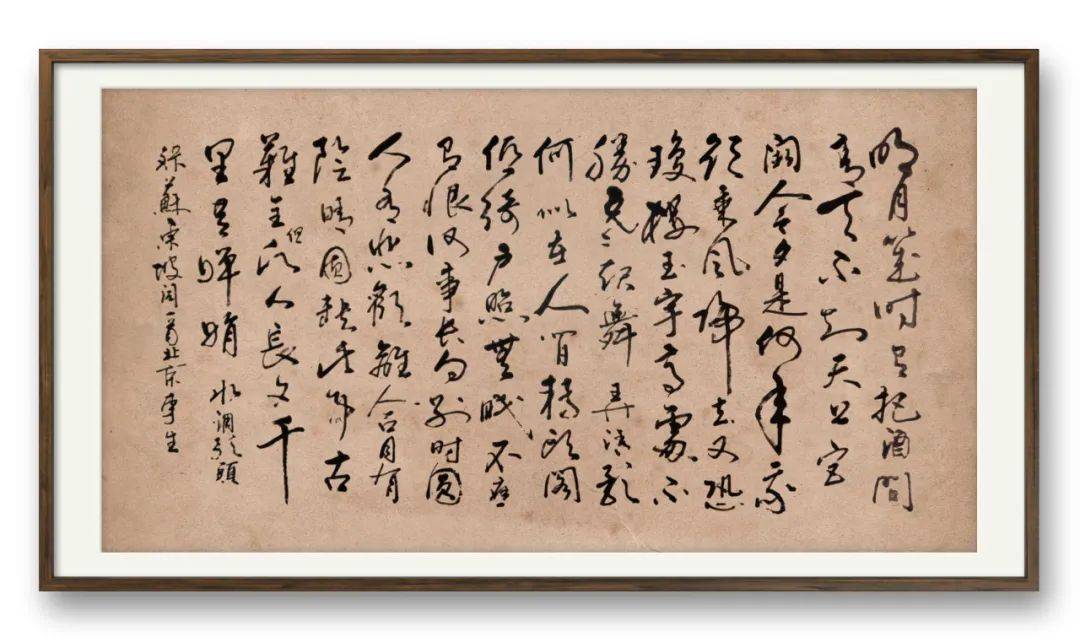 明月幾时有把酒問
青天不知天上宫
闕今夕是何年我
欲乘風歸去又恐
瓊樓玉宇高處不
勝寒起舞弄清影
何似在人间轉朱閣
低綺户照無眠不應
有恨何事长向别时圓
人有悲歡離合月有
陰晴圓缺此事古
難全但願人長久千
里共嬋娟 水調歌頭
錄蘇東坡词一首北京